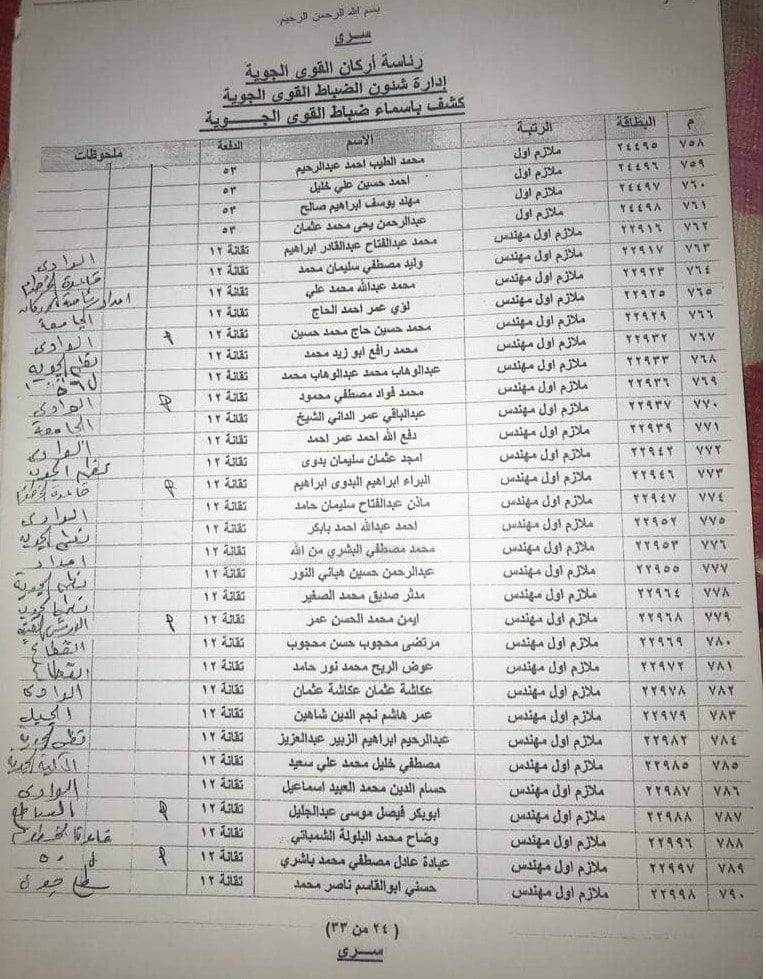 بسم الله الرحمن الرحيم
سرى
رئاسة أركان القوى الجوية
إدارة شئون الضباط القوى الجوية
كشف باسماء ضباط القوى الجـــوية
م البطاقة الرتبة الاسم الدفعة ملحوظات
٧٥٨ ٢٤٤٩٥ ملازم اول محمد الطيب احمد عبدالرحيم ٥٣
٧٥٩ ٢٤٤٩٦ ملازم اول احمد حسين علي خليل ٥٣
٧٦٠ ٢٤٤٩٧ ملازم اول مهند يوسف ابراهيم صالح ٥٣
٧٦١ ٢٤٤٩٨ ملازم اول عبدالرحمن يحى محمد عثمان ٥٣
٧٦٢ ٢٢٩١٦ ملازم اول مهندس محمد عبدالفتاح عبدالقادر ابراهيم تقانة ١٢ الوادى
٧٦٣ ٢٢٩١٧ ملازم اول مهندس وليد مصطفي سليمان محمد تقانة ١٢ قاعدة الخرطوم
٧٦٤ ٢٢٩٢٣ ملازم اول مهندس محمد عبدالله محمد علي تقانة ١٢ امداد
٧٦٥ ٢٢٩٢٥ ملازم اول مهندس لؤي عمر احمد الحاج تقانة ١٢ الجامعة
٧٦٦ ٢٢٩٢٩ ملازم اول مهندس محمد حسين حاج محمد حسين تقانة ١٢ الوادى
٧٦٧ ٢٢٩٣٢ ملازم اول مهندس محمد رافع ابو زيد محمد تقانة ١٢
٧٦٨ ٢٢٩٣٣ ملازم اول مهندس عبدالوهاب محمد عبدالوهاب محمد تقانة ١٢
٧٦٩ ٢٢٩٣٦ ملازم اول مهندس محمد فواد مصطفي محمود تقانة ١٢ الوادى
٧٧٠ ٢٢٩٣٧ ملازم اول مهندس عبدالباقي عمر الداني الشيخ تقانة ١٢ الجامعة
٧٧١ ٢٢٩٣٩ ملازم اول مهندس دفع الله احمد عمر احمد تقانة ١٢ الوادى
٧٧٢ ٢٢٩٤٢ ملازم اول مهندس امجد عثمان سليمان بدوى تقانة ١٢
٧٧٣ ٢٢٩٤٦ ملازم اول مهندس البراء ابراهيم البدوى ابراهيم تقانة ١٢ قاعدة
٧٧٤ ٢٢٩٤٧ ملازم اول مهندس ماذن عبدالفتاح سليمان حامد تقانة ١٢ الوادى
٧٧٥ ٢٢٩٥٢ ملازم اول مهندس احمد عبدالله احمد بابكر تقانة ١٢
٧٧٦ ٢٢٩٥٣ ملازم اول مهندس محمد مصطفي البشري من الله تقانة ١٢ امداد
٧٧٧ ٢٢٩٥٥ ملازم اول مهندس عبدالرحمن حسين هباني النور تقانة ١٢
٧٧٨ ٢٢٩٦٤ ملازم اول مهندس مدثر صديق محمد الصغير تقانة ١٢
٧٧٩ ٢٢٩٦٨ ملازم اول مهندس ايمن محمد الحسن عمر تقانة ١٢
٧٨٠ ٢٢٩٦٩ ملازم اول مهندس مرتضى محجوب حسن محجوب تقانة ١٢ القطاع
٧٨١ ٢٢٩٧٢ ملازم اول مهندس عوض الريح محمد نور حامد تقانة ١٢ القطاع
٧٨٢ ٢٢٩٧٨ ملازم اول مهندس عكاشة عثمان عكاشة عثمان تقانة ١٢ الوادى
٧٨٣ ٢٢٩٧٩ ملازم اول مهندس عمر هاشم نجم الدين شاهين تقانة ١٢ الجبل
٧٨٤ ٢٢٩٨٢ ملازم اول مهندس عبدالرحيم ابراهيم الزبير عبدالعزيز تقانة ١٢
٧٨٥ ٢٢٩٨٥ ملازم اول مهندس مصطفي خليل محمد علي سعيد تقانة ١٢ الكلية الجوية
٧٨٦ ٢٢٩٨٧ ملازم اول مهندس حسام الدين محمد العبيد اسماعيل تقانة ١٢ الوادى
٧٨٧ ٢٢٩٨٨ ملازم اول مهندس ابوبكر فيصل موسى عبدالجليل تقانة ١٢
٧٨٨ ٢٢٩٩٦ ملازم اول مهندس وضاح محمد البلولة الشمباتي تقانة ١٢ قاعدة الخرطوم
٧٨٩ ٢٢٩٩٧ ملازم اول مهندس عبادة عادل مصطفي محمد باشري تقانة ١٢
٧٩٠ ٢٢٩٩٨ ملازم اول مهندس حسني ابوالقاسم ناصر محمد تقانة ١٢
( ٢٤ من ٣٣)
سرى